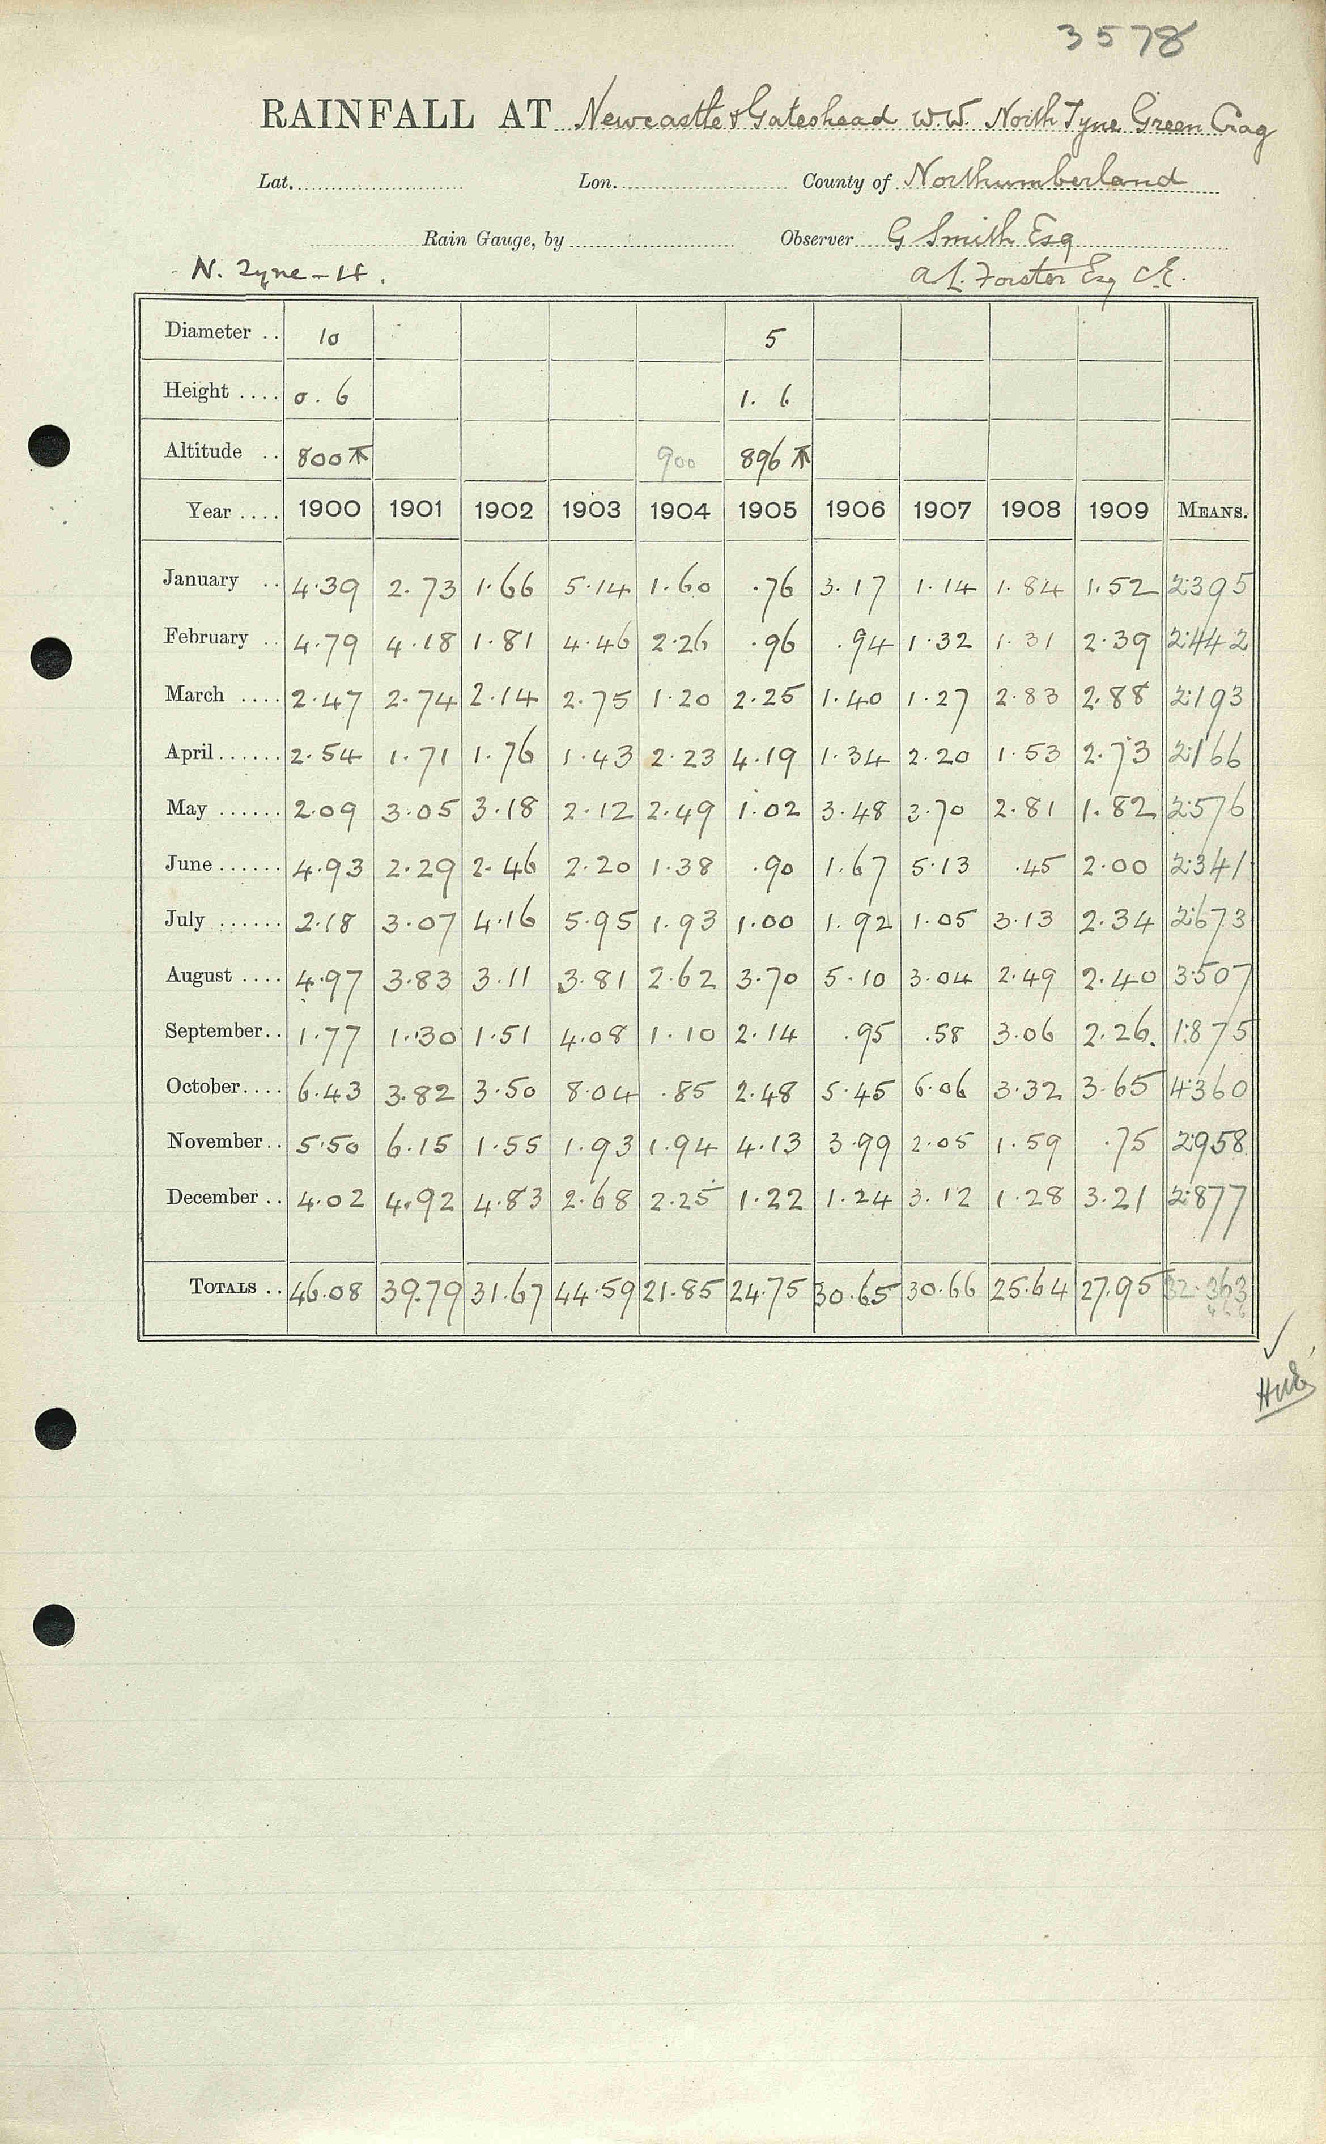 3578
RAINFALL AT Newcastle & Gateshead W.W. North Tyne Green Crag
Lat. Lon. County of Northumberland
Rain Gauge, by Observer G Smith Esq
N. Tyne - 14. A.L. Forster Esq C.E.
Diameter .. 10 5
Height .... 0.6 1.6
Altitude .. 800 900 896
Year .... 1900 1901 1902 1903 1904 1905 1906 1907 1908 1909 MEANS.
January .. 4.39 2.73 1.66 5.14 1.60 .76 3.17 1.14 1.84 1.52 2.395
February .. 4.79 4.18 1.81 4.46 2.26 .96 .94 1.32 1.31 2.39 2.442
March .... 2.47 2.74 2.14 2.75 1.20 2.25 1.40 1.27 2.83 2.88 2.193
April ...... 2.54 1.71 1.76 1.43 2.23 4.19 1.34 2.20 1.53 2.73 2.166
May ...... 2.09 3.05 3.18 2.12 2.49 1.02 3.48 3.70 2.81 1.82 2.576
June ...... 4.93 2.29 2.46 2.20 1.38 .90 1.67 5.13 .45 2.00 2.341
July ...... 2.18 3.07 4.16 5.95 1.93 1.00 1.92 1.05 3.13 2.34 2.673
August .... 4.97 3.83 3.11 3.81 2.62 3.70 5.10 3.04 2.49 2.40 3.507
September .. 1.77 1.30 1.51 4.08 1.10 2.14 .95 .58 3.06 2.26. 1.875
October .... 6.43 3.82 3.50 8.04 .85 2.48 5.45 6.06 3.32 3.65 4.360
November .. 5.50 6.15 1.55 1.93 1.94 4.13 3.99 2.05 1.59 .75 2.958
December .. 4.02 4.92 4.83 2.68 2.25 1.22 1.24 3.12 1.28 3.21 2.877
TOTALS .. 46.08 39.79 31.67 44.59 21.85 24.75 30.65 30.66 25.64 27.95 32.363